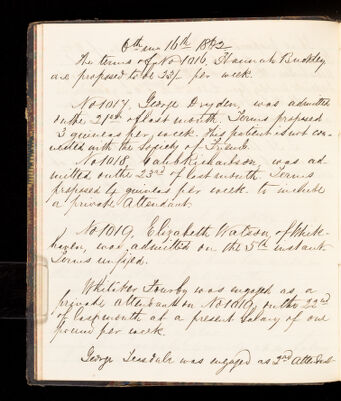 6th mo 16th 1842
The terms of No 1016, Hannah Buckley
are proposed to be 25/ per week.
No 1017, George Dryden, was admitted
on the 21st of last month. Terms proposed
3 guineas per week. This patient is not con-
nected with the Society of Friends.
No 1018, Richardson, was ad-
mitted on the 23rd of last month. Terms
proposed 4 guineas per week to include
a private Attendant.
No 1019, Elizabeth Watson, of White-
haven, was admitted on the 5th instant.
Terms unfixed.
was engaged as a
private attendant on No 1018, on the 23rd
of last month at a present salary of one
pound per week.
George Teasdale was engaged as 3rd Attendant